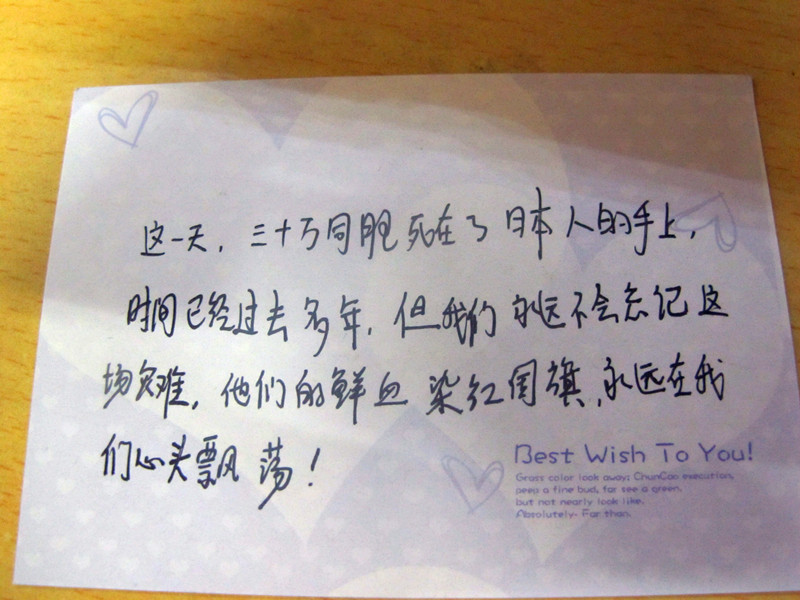 这一天，三十万同胞死在了日本人的手上，
时间已经过去多年，但我们永远不会忘记这
场灾难，他们的鲜血染红国旗，永远在我
们心头飘荡！
Best Wish To You!
Grass color look away; ChunCao execution,
peep a fine bud, far see a green,
but not nearly look like.
Absolutely- Far than.